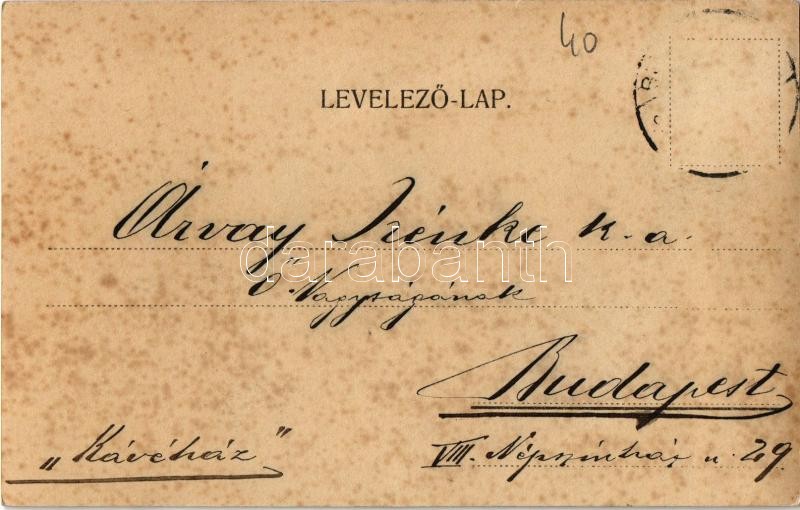 40
LEVELEZŐ-LAP.
Árvay Irénke k. a.
Ő Nagyságának
darabanth
Budapest
VIII. Népszinház u. 29
„Kávéház"